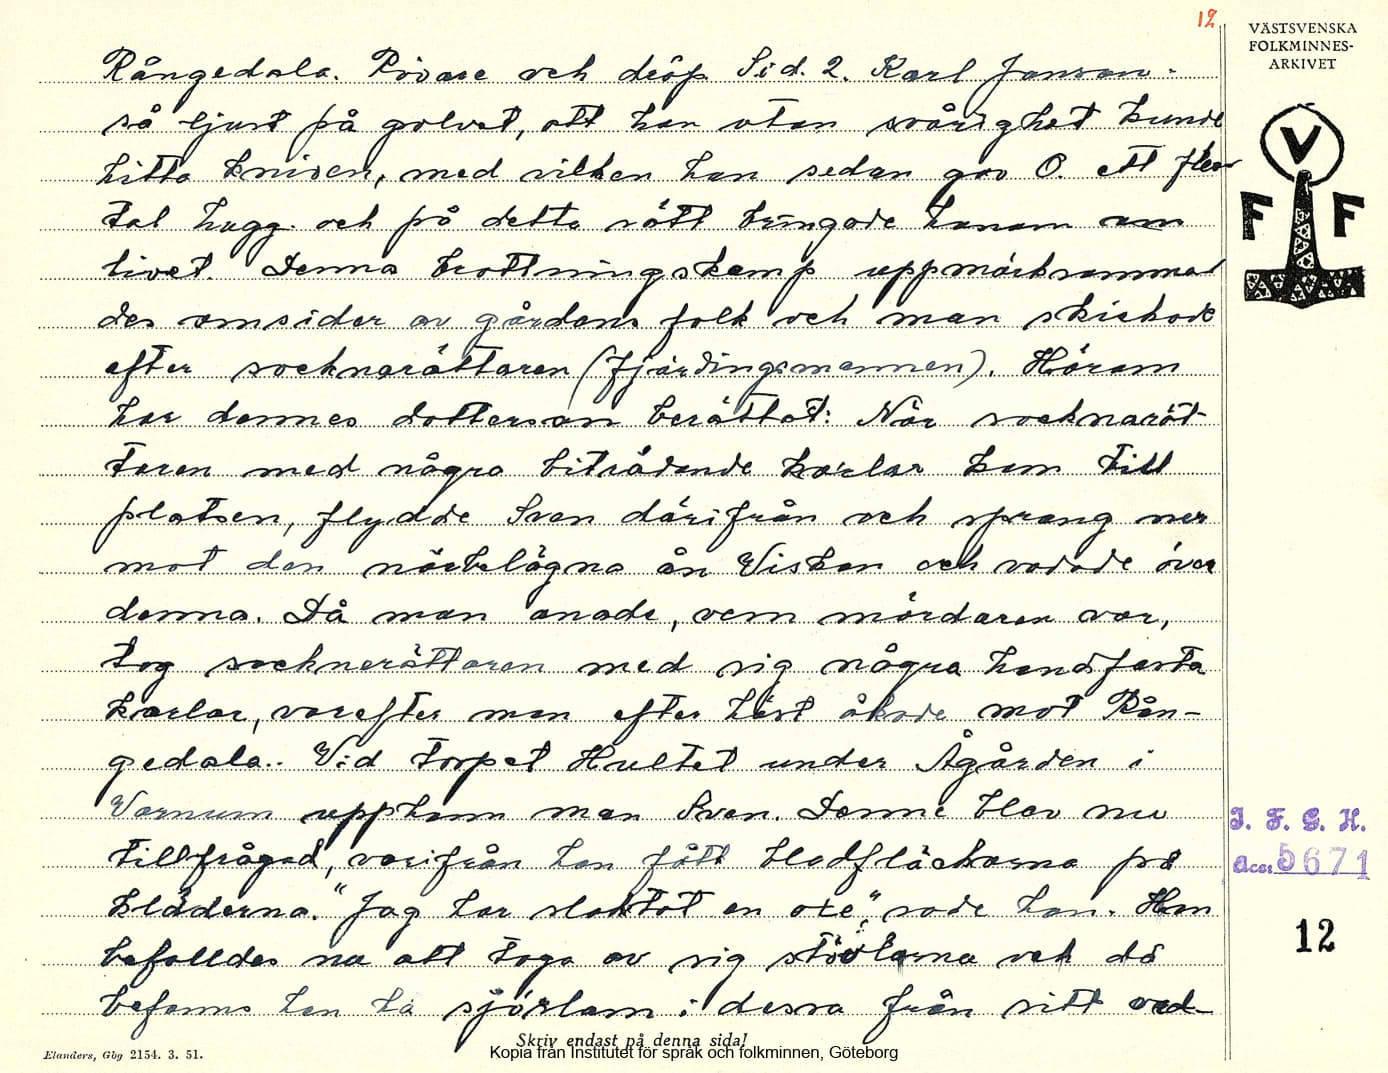 12
VÄSTSVENSKA
FOLKMINNES-
ARKIVET
Rångedala. Rövare och dråp Sid. 2. Karl Janson.
så ljust på golvet, att han utan svårighet kunde
hitta kniven, med vilken han sedan gav O. ett fler-
tal hugg och på detta sätt bringade honom om
livet. Denna brottningskamp uppmärksamma-
des omsider av gårdens folk och man skickade
efter socknarättaren (fjärdingsmannen). Härom
har dennes dotterson berättat: När socknarät-
taren med några biträdande karlar kom till
platsen, flydde Sven därifrån och sprang ner
mot den närbelägna ån Viskan och vadade över
denna. Då man anade, vem mördaren var,
tog socknerättaren med sig några handfasta
karlar, varefter man efter häst åkade mot Rån-
gedala.. Vid torpet Hultet under Ågården i
Varnum upphann man Sven. Denne blev nu
tillfrågad, varifrån han fått blodfläckarna på
kläderna. "Jag har slaktat en oxe", sade han. Han
befalldes nu att taga av sig stövlarna och då
befanns han ha sjövlam i dessa från sitt vad-
V
F F
I. F. G. H.
acc. 5671
12
Skriv endast på denna sida!
Elanders, Gbg 2154. 3. 51.
Kopia från Institutet för språk och folkminnen, Göteborg